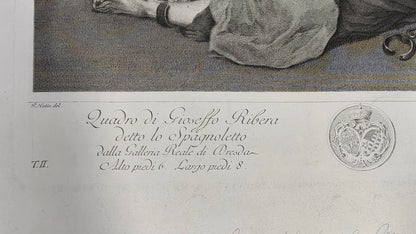 P. Hutin del.
Quadro di Gioseffo Ribera
detto lo Spagnoletto
dalla Galleria Reale di Dresda
T.II. Alto piedi 6. Largo piedi 8.